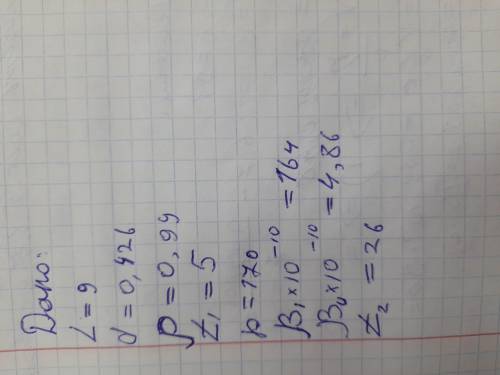 Дано:
L = 9
d = 0,426
ρ = 0,99
t₁ = 5
p = 170
β₁ × 10⁻¹⁰ = 164
β₀ × 10⁻¹⁰ = 4,86
t₂ = 26